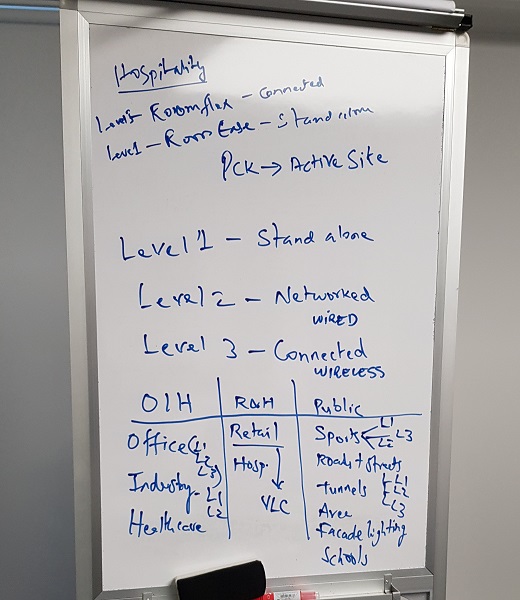 Hospitality
Level3 - Roomflex - Connected
Level1 - Room Ease - Stand alone
PCK → Active Site
Level 1 - Stand alone
Level 2 - Networked
WIRED
Level 3 - Connected
WIRELESS
OIH R&H Public
Office (L1 L2 L3) Retail Sports L1 L2 L3
Hosp. Roads + streets
Industry - L1 L2 VLC Tunnels L1 L2 L3
Area
Healthcare Facade lighting
Schools